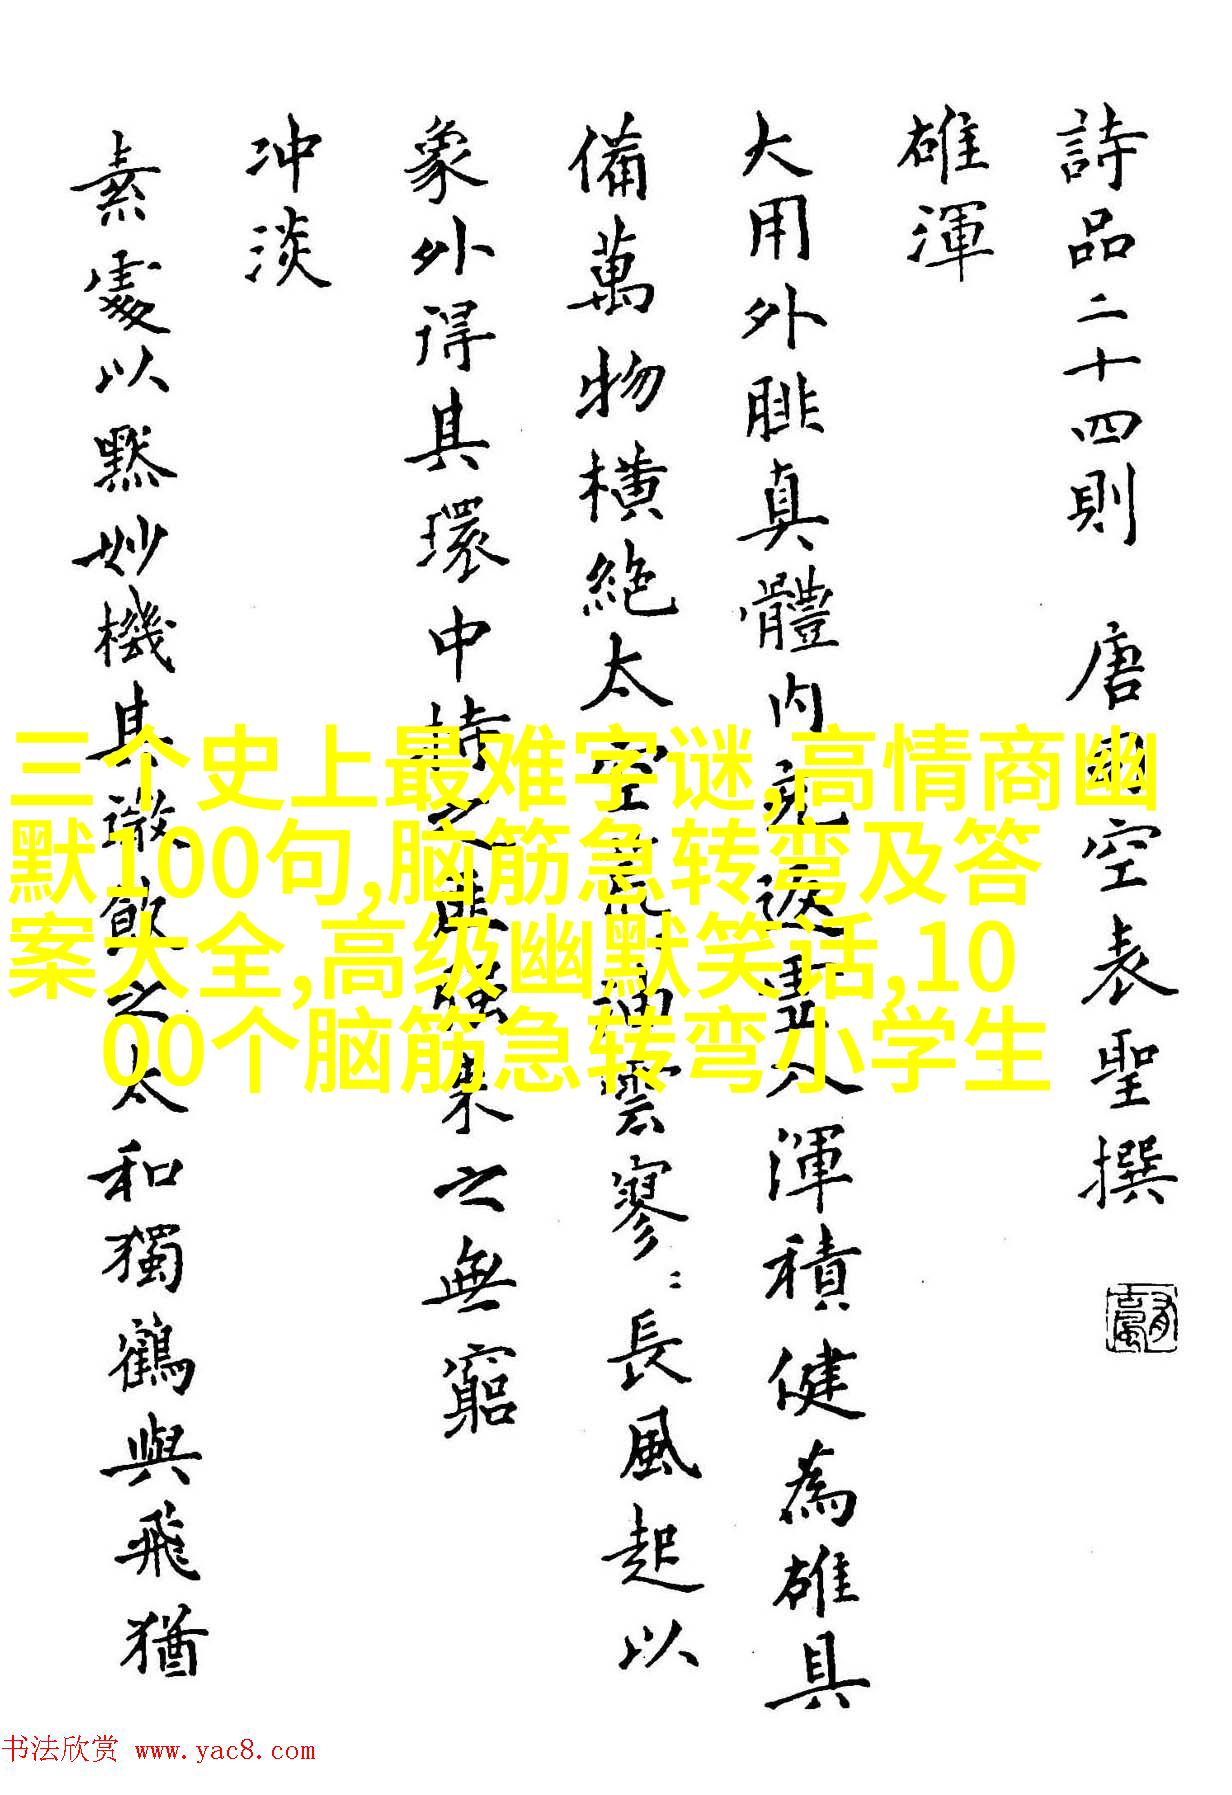 詩品二十四則 唐司空表聖撰
雄渾
大用外腓真體内充返虛入渾積健為雄具
備萬物橫絶太空荒荒油雲寥〻長風起以
象外得其環中持之匪強來之無窮
冲淡
素處以默妙機其微飲之太和獨鶴與飛猶
三个史上最难字谜,高情商幽
默100句,脑筋急转弯及答
案大全,高级幽默笑话,10
00个脑筋急转弯小学生
书法欣赏 www.yac8.com